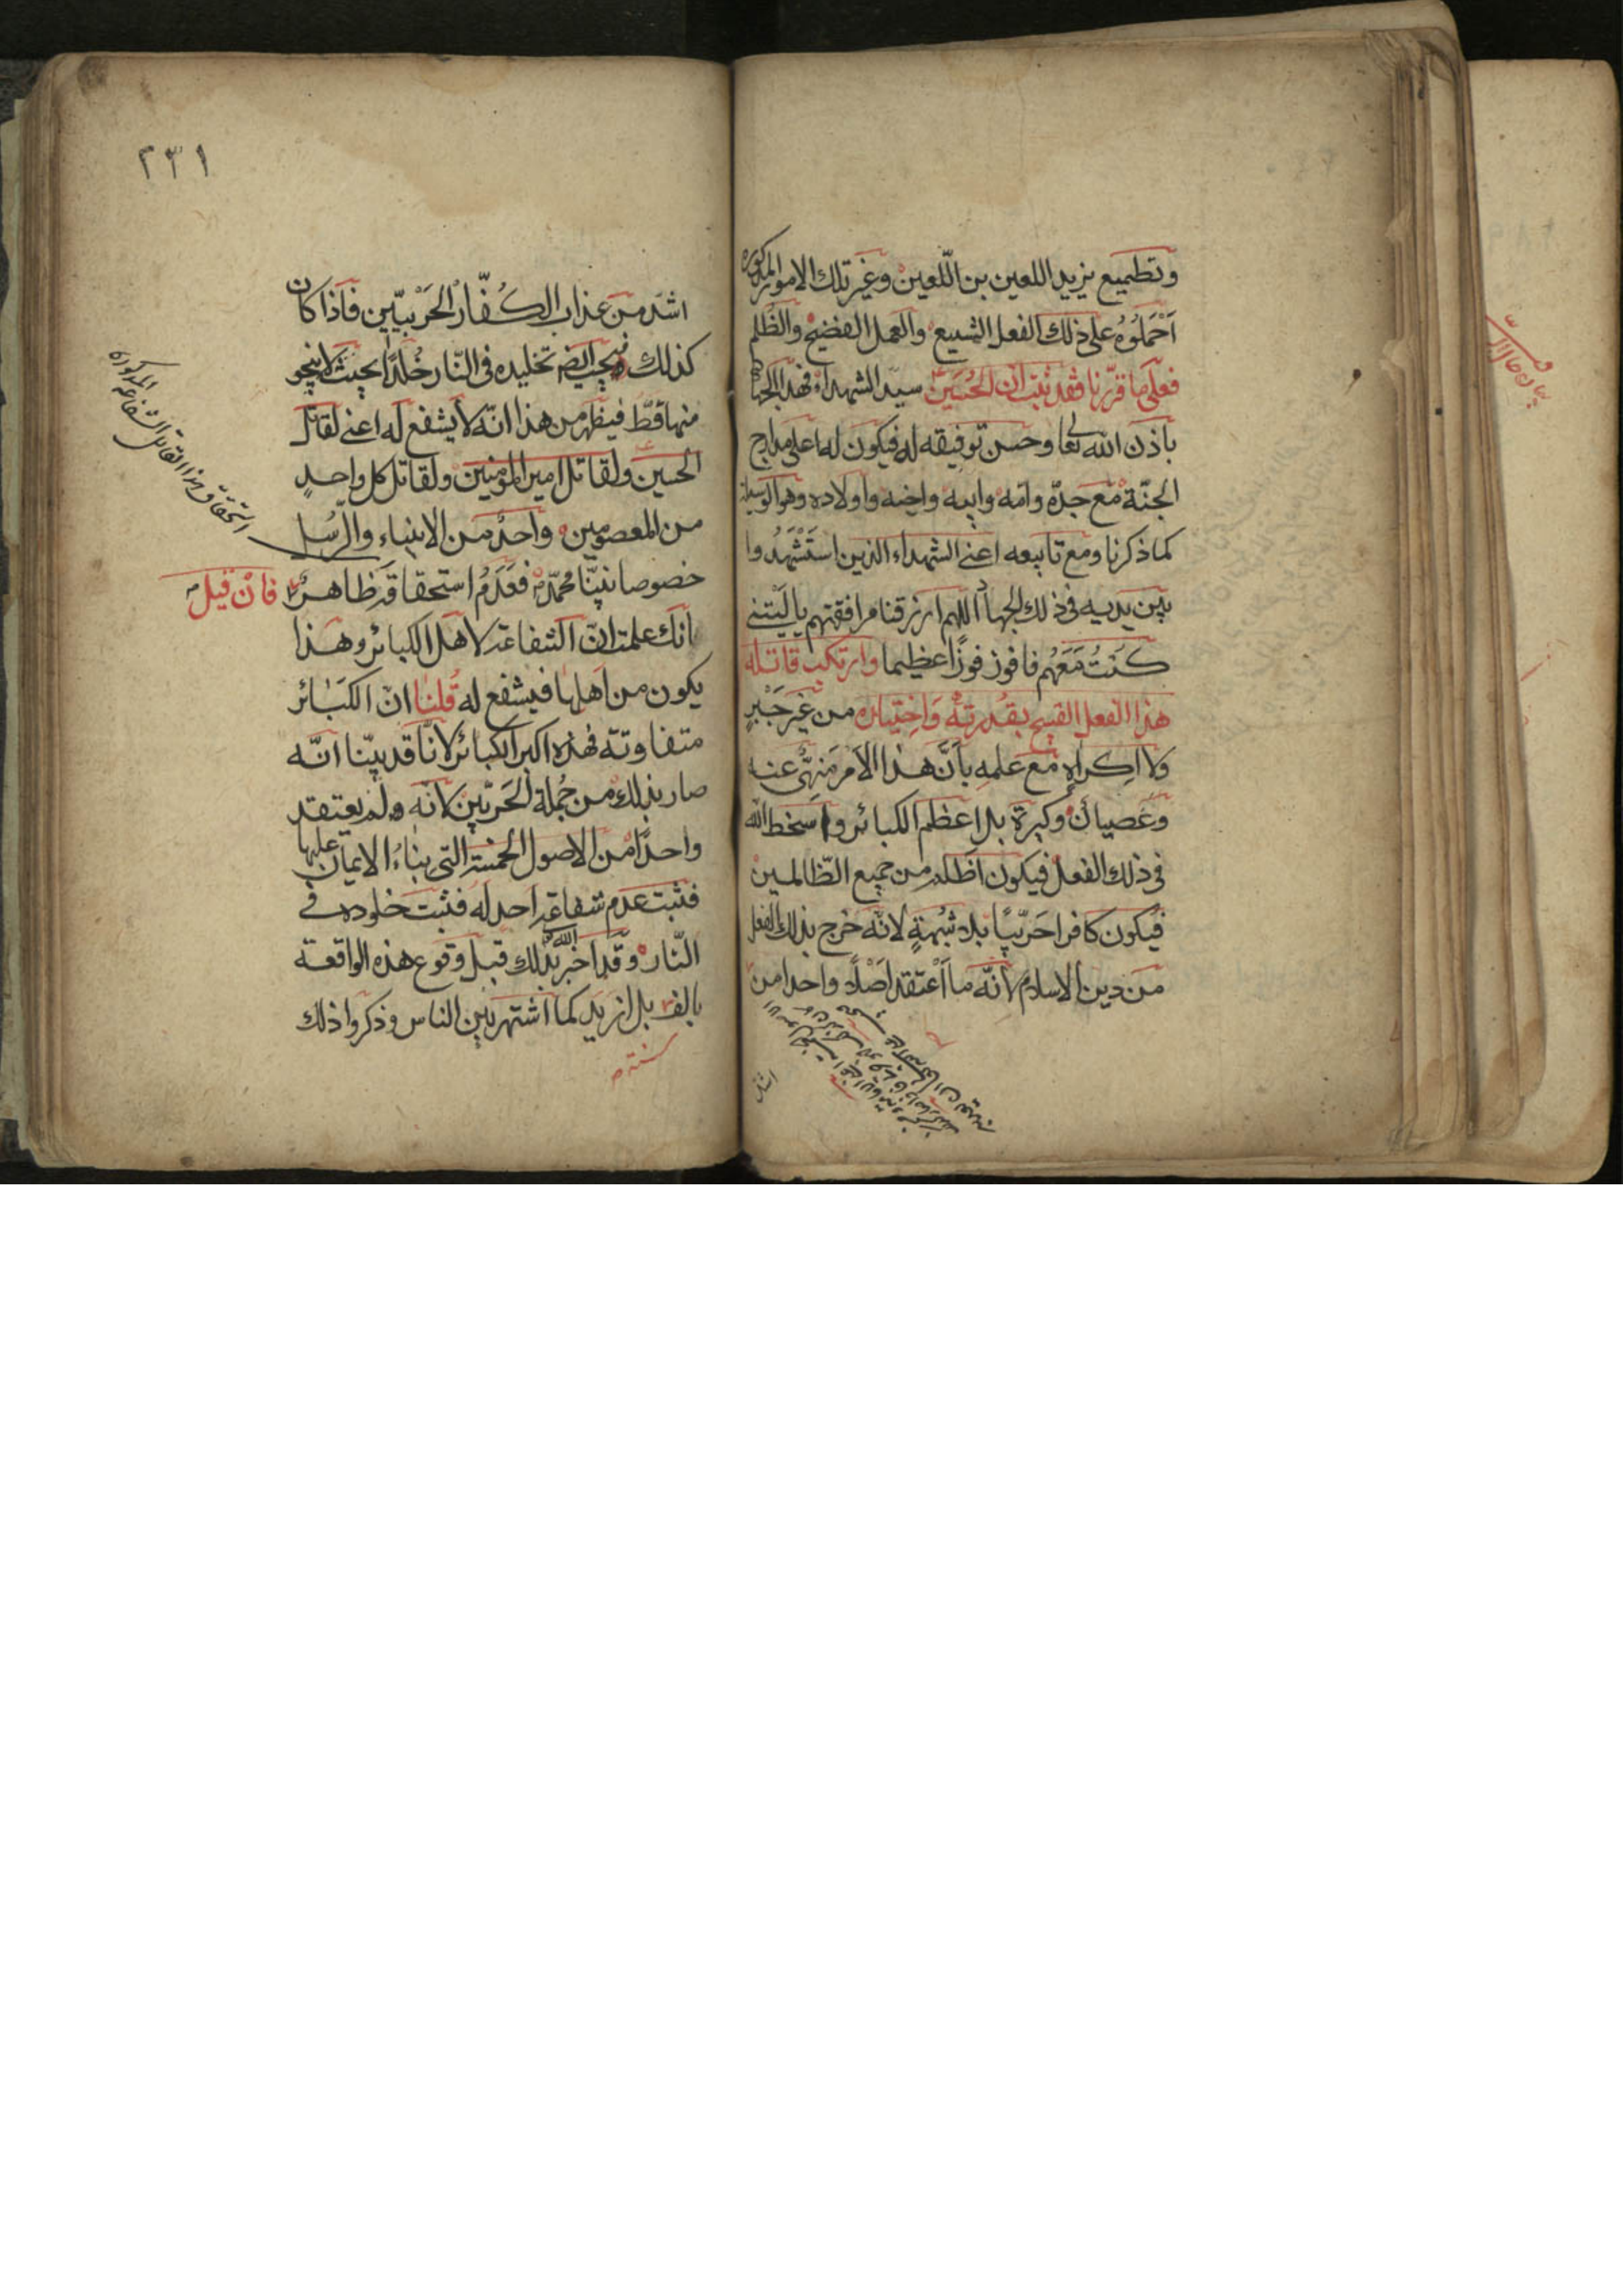 وتطميع يزيد اللعين بن اللّعين وغير تلك الامور المذكورة
احملوه على ذلك الفعل الشنيع والعمل الفضيح والظلم
فعلى ما قرّرنا فقد ثبت ان الحسين سيّد الشهداء فهذا الجهاد
باذن الله تعا وحسن توفيقه له فيكون له اعلى مدارج
الجنّة مع جدّه وامّه وابيه واخيه واولاده وهو الوسيلة
كما ذكرنا ومع تابيعه اعنى الشهداء الذين استَشْهَدُوا
بين يديه فى ذلك الجهاد اللهم ارزقنا مرافقتهم يا ليتنى
كنتُ مَعَهُم فافوز فوزًا عظيما وارتكب قاتله
هذا الفعل القبيح بقُدرته وَاختياره من غير جَبْرٍ
ولا اكراهٍ مع علمهِ بأنَّ هذا الامر منهىٌّ عنه
وعصيان وكبيرة بل اعظم الكبائر واسخط الله
فى ذلك الفعل فيكون اظلم من جميع الظّالمين
فيكون كافرا حَربّيًا بلا شُبْهةٍ لانّه خرج بذلك الفعل
من دين الاسلام لانّه ما اعتقد اصلًا واحدا من
اشدّ
٢٣١
اشدّ من عذاب الكُفّار الحَرْبيّين فاذا كان
كذلك فيجب ايضا تخليده فى النّار خُلدًا بحيث لا ينجو
منها قطّ فيظهر من هذا انّه لا يشفع له اعنى لقاتل
الحسين ولقاتل امير المؤمنين ولقاتل كل واحدٍ
من المعصومين واحدٌ من الانبياء والرّسُل
خصوصا نبيّنا محمّد فعَدَمُ استحقاقه ظاهرٌ فان قيل
انك علمت انّ الشفاعة لاهل الكبائر وهذا
يكون من اهلها فيشفع له قُلنا انّ الكبَائر
متفاوتة فهذه اكبر الكبائر لانّا قد بيّنا انّه
صار بذلك من جُملة الحَربّين لانّه لم يعتقد
واحدًا من الاصول الخمسة التى بناءُ الايمان عليها
فثبت عدم شفاعة احد له فثبت خلوده فى
النّار وقد اخبر الله بذلك قبل وقوع هذه الواقعة
بالف بل ازيد كما اشتهر بين الناس وذكروا ذلك
سنة
استحقاق هذا القاتل الشفاعة المذكورة